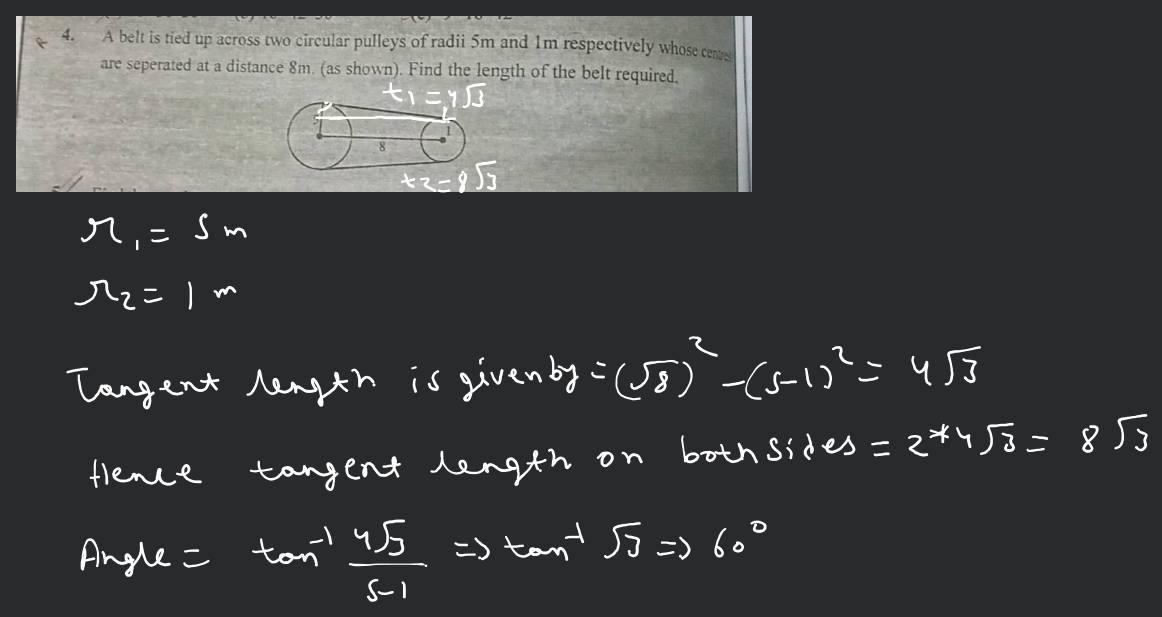 4. A belt is tied up across two circular pulleys of radii 5m and 1m respectively whose centres
are seperated at a distance 8m. (as shown). Find the length of the belt required.
t₁ = 4√3
1
8
t2 = 8√3
r₁ = 5 m
r₂ = 1 m
Tangent length is given by = (√8)² - (5-1)² = 4√3
Hence tangent length on both sides = 2*4√3 = 8√3
Angle = tan⁻¹ 4√3/5-1 => tan⁻¹ √3 => 60°